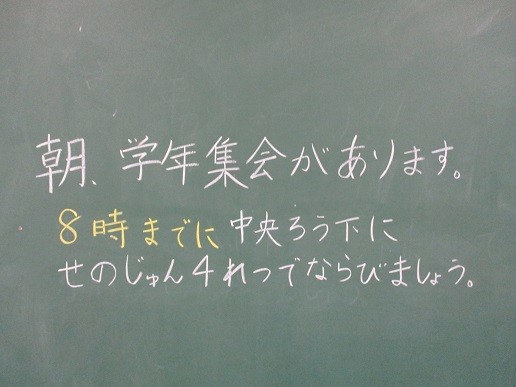 朝、学年集会があります。
8時までに中央ろう下に
せのじゅん4れつでならびましょう。